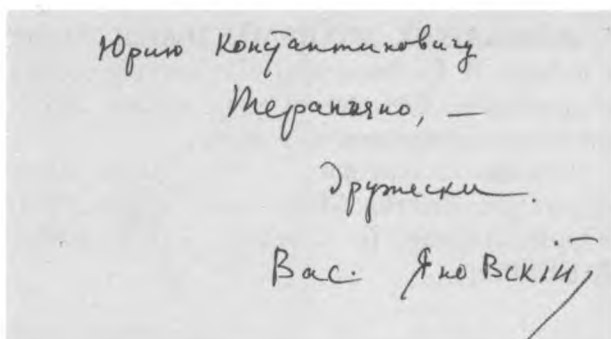 Юрию Константиновичу
Терапиано, —
дружески.
Вас. Яновскій